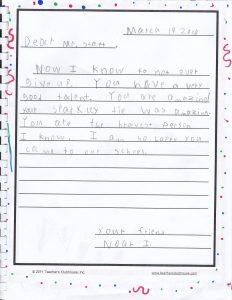 March 19 2018
Dear Mr. Scott,
Now I know to not ever
give up. You have a very
good talent. You are amazing
your sparkley tie was amazing.
You are the bravest person
I know. I am so happy you
came to our school.
Your friend
Noat I.
© 2011 Teacher's Clubhouse, Inc.
www.teachersclubhouse.com